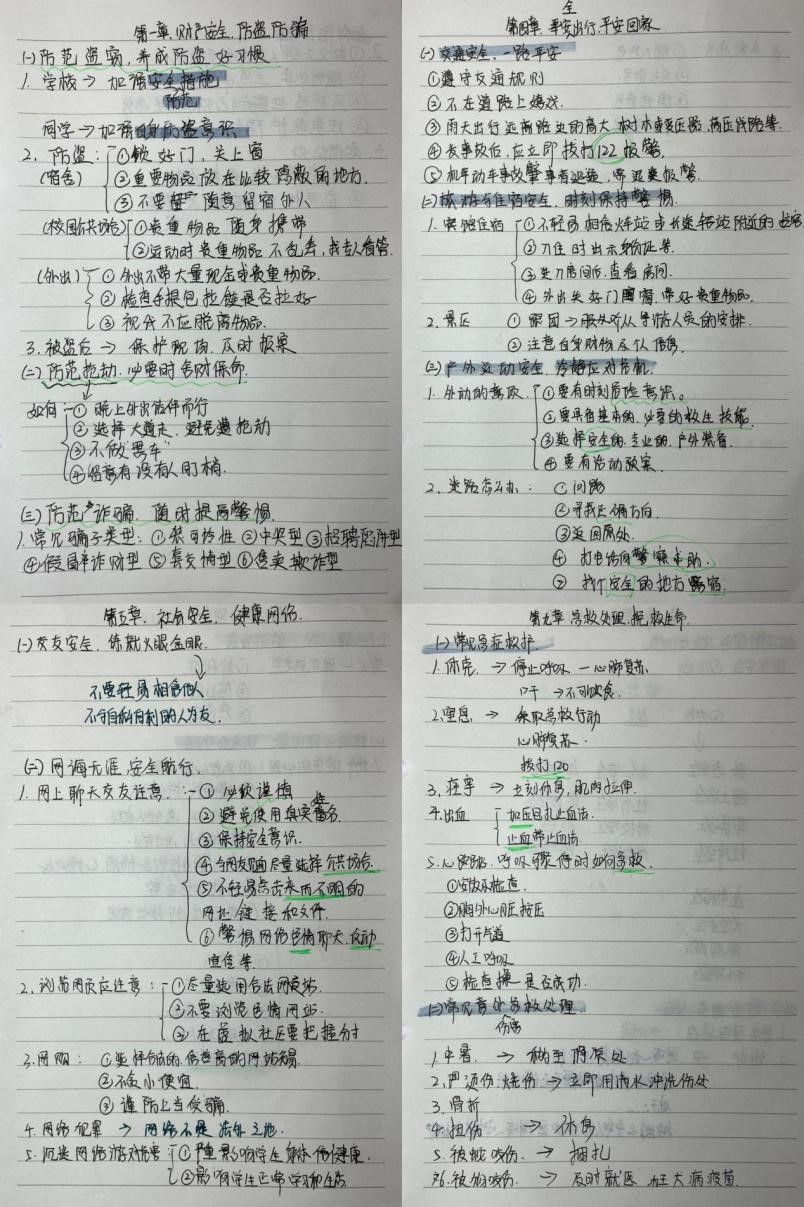 第一章、财产安全，防盗防骗
(一)防范盗窃，养成防盗好习惯
1. 学校→ 加强安全措施
防范
同学→加强自身防盗意识
2. 防盗：①锁好门，关上窗
(宿舍) ②重要物品放在比较隐蔽的地方.
③不要随意留宿外人
(校园公共场合) ①贵重物品随身携带
②运动时贵重物品不包弄，找专人看管.
(外出) ①外出不带大量现金或贵重物品.
②检查手提包拉链是否拉好
③视线不应脱离物品.
3. 被盗后 → 保护现场，及时报案
(二)防范抢劫，必要时舍财保命.
如何 ①晚上外出结伴而行
②选择大道走，避免遭抢劫
③不做"黑车"
④留意有没有人盯梢.
(三)防范诈骗，随时提高警惕.
1. 常见骗子类型：① ②中奖型 ③招聘陷阱型
④假冒诈财型 ⑤套交情型 ⑥售卖欺诈型
全
第四章、平安出行，平安回家
(一)交通安全，一路平安
①遵守交通规则
②不在道路上嬉戏.
③雨天出行远离路边的高大树木或变压器，高压线路等.
④发事故后，应立即拨打122报警.
⑤机动车事故肇事者逃逸，应迅速报警.
(二)旅游住宿安全，时刻保持警惕.
1. 宾馆住宿 ①不轻易相信火车站或长途车站附近的
②入住时出示身份证等.
③进入房间后，查看房间.
④外出关好门窗，带好贵重物品.
2. 景区 ①跟团→服从听从导游人员的安排.
②注意自身财物及个人信息.
(三)户外运动安全，冷静应对危机.
1. 外动的意识 ①要有时刻危险意识。
②要具有基本的、必要的救生技能.
③选择安全的、专业的、户外装备.
④要有活动预案.
2. 迷路怎么办： ①问路
②寻找正确方向.
③返回原处.
④ 打电话向警察求助.
⑤ 找个安全的地方露宿.
第五章、社会安全，健康网络.
(一)交友安全，练就火眼金睛.
不要轻易相信他人
不与自私自利的人为友.
(二)网海无涯，安全航行.
1. 网上聊天交友注意：①必须谨慎
②避免使用真实姓名.
③保持安全意识.
④与网友见面尽量选择公共场合.
⑤不轻易点击来历不明的
网址链接和文件.
⑥警惕网络色情聊天，反动
宣传等.
2. 浏览网页应注意：①尽量选用合法网站.
②不要浏览色情网站.
③在虚拟社区要把握分寸
3. 网购：①选择合法的、信誉高的网站交易.
②不贪小便宜.
③谨防上当受骗.
4. 网络犯罪 → 网络不是法外之地.
5. 沉迷网络游戏危害 ①严重影响学生身体健康.
②影响学生正常学习和生活.
第九章 急救处理，挽救生命.
(一)常见急症救护.
1. 休克 → 停止呼吸—心肺复苏
口干 →不可饮食.
2. 窒息 → 采取急救行动
心肺复苏.
拨打120
3. 痉挛 → 立刻休息，肌肉拉伸.
4. 出血 加压包扎止血法.
止血带止血法
5. 心跳、呼吸骤停时如何急救.
①安放及检查.
②胸外心脏按压
③打开气道
④人工呼吸
⑤检查操是否成功.
(二)常见意外急救处理.
伤害
1. 中暑. → 移至阴凉处
2. 严烫伤、烧伤 → 立即用清水冲洗伤处
3. 骨折
4. 扭伤 → 休息
5. 被蛇咬伤. → 捆扎
6. 被狗咬伤. → 及时就医、打狂犬病疫苗.